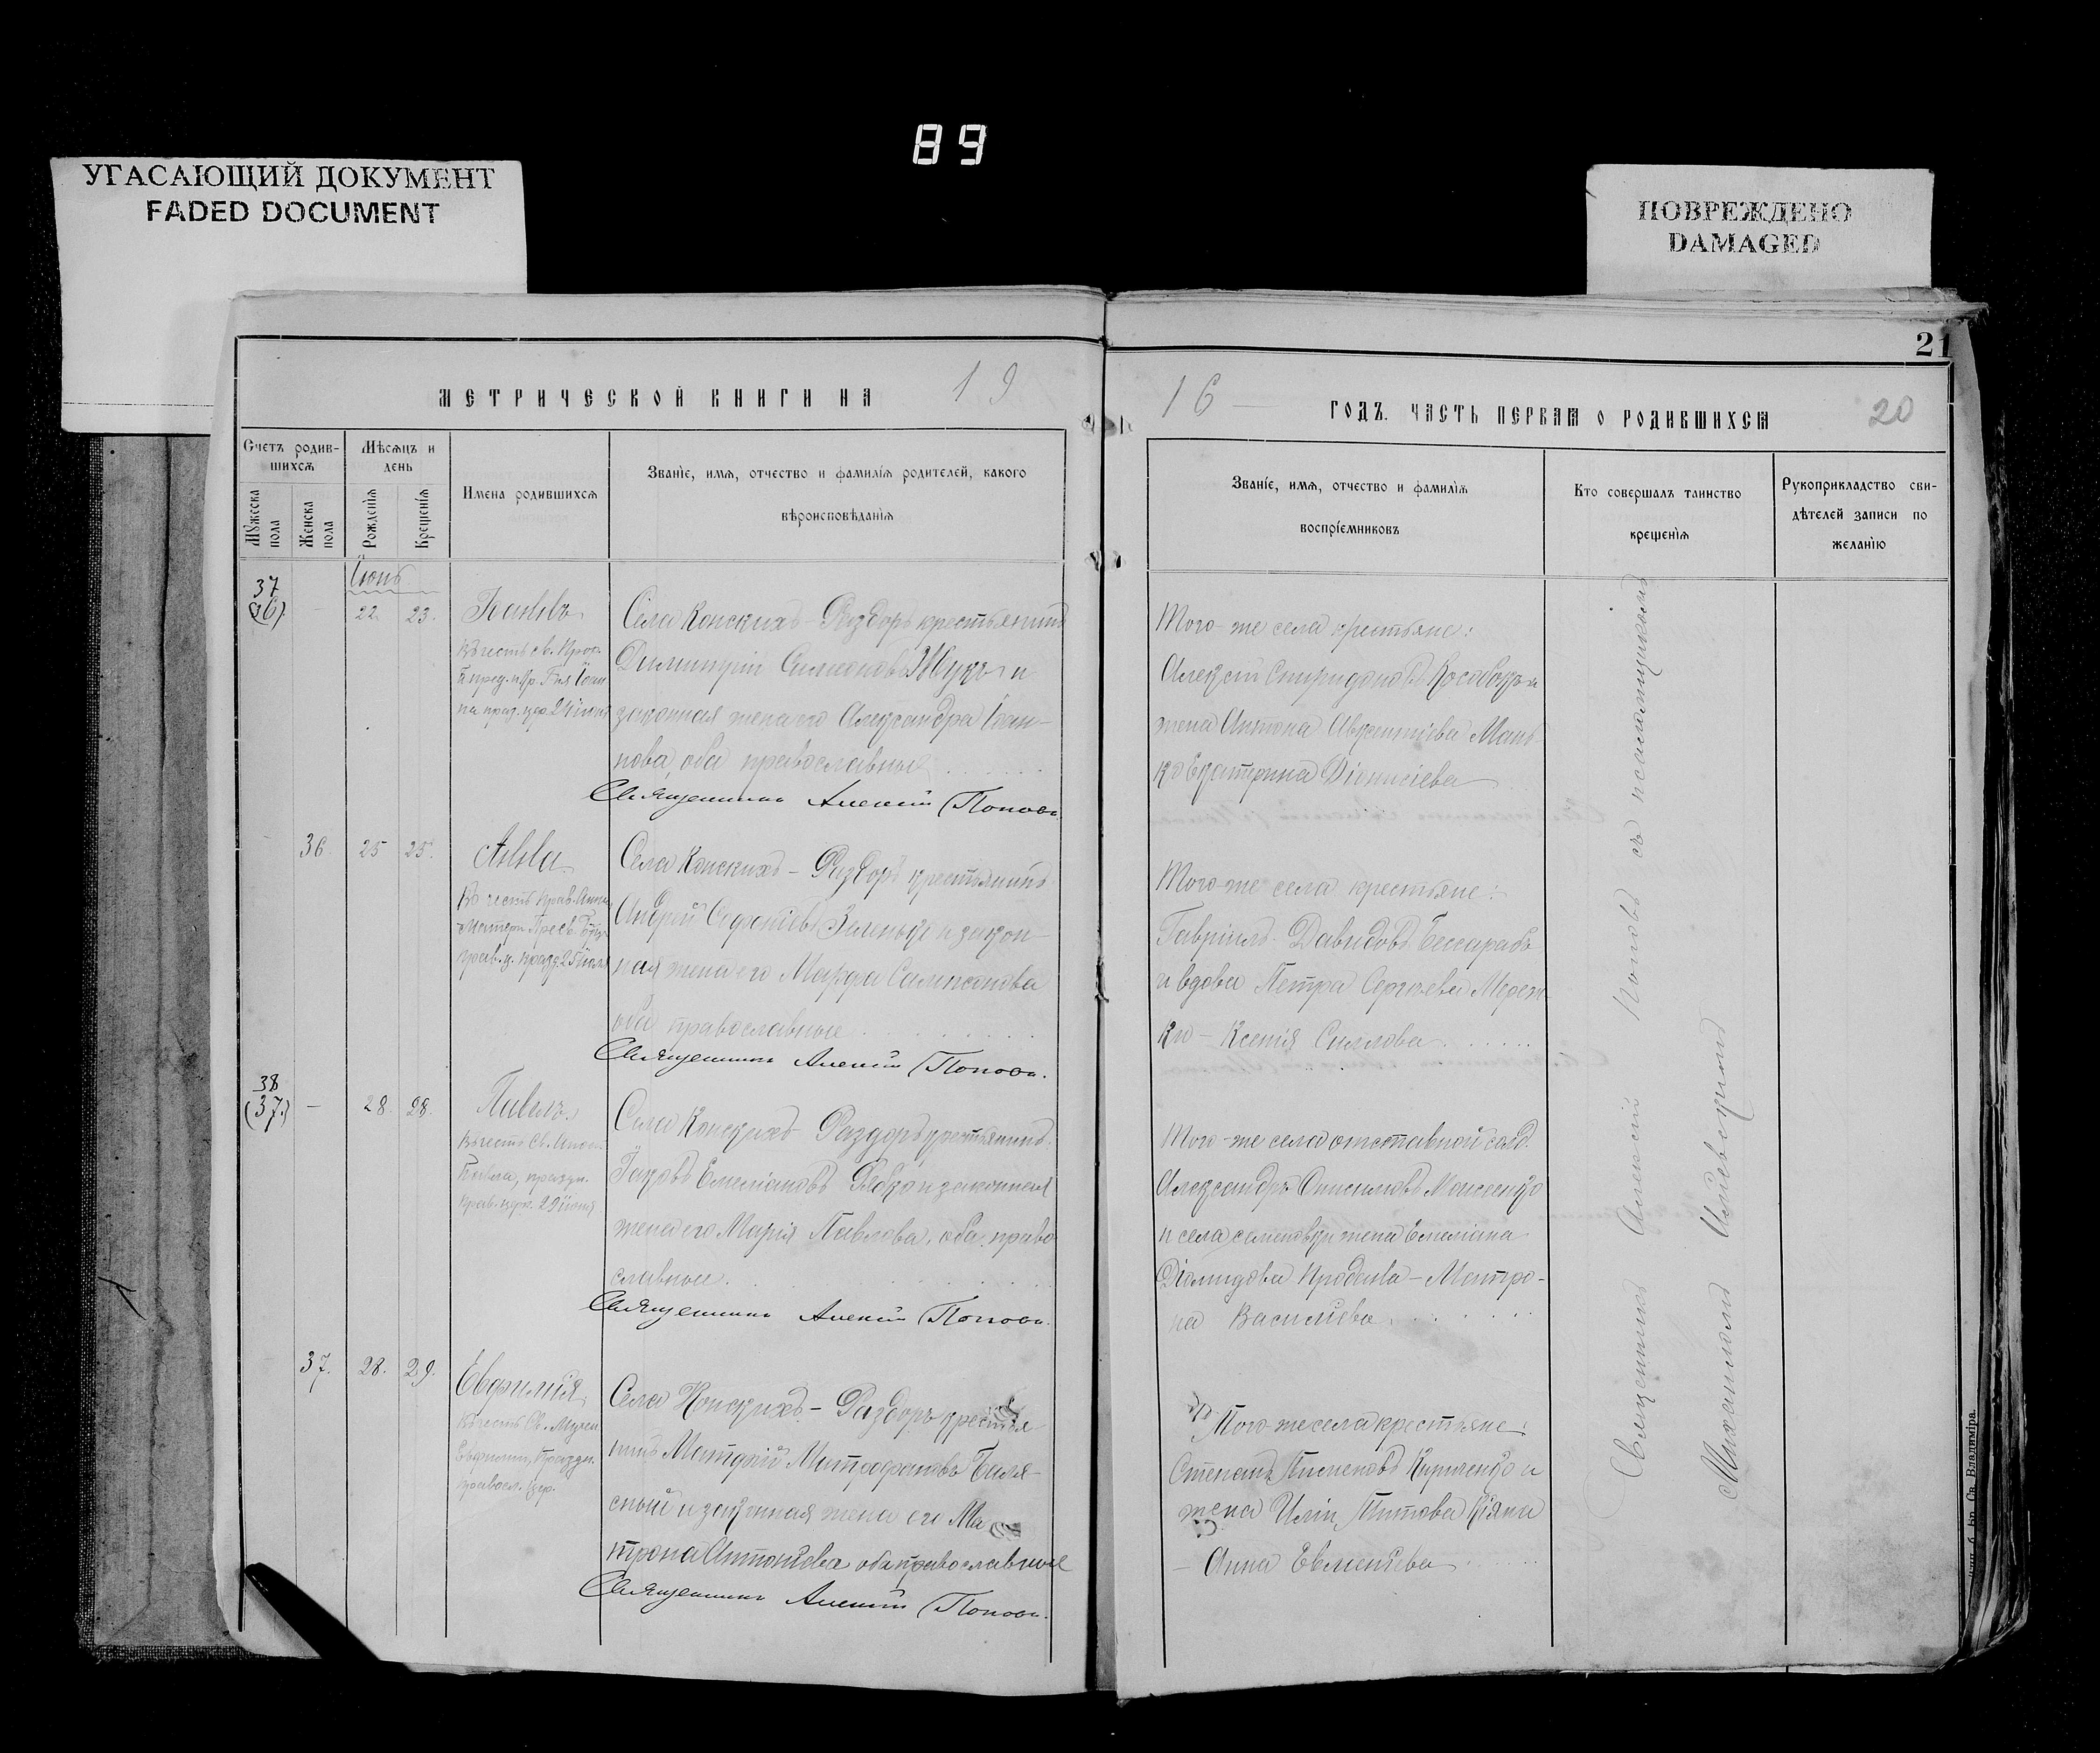 89
УГАСАЮЩИЙ ДОКУМЕНТ
FADED DOCUMENT
ПОВРЕЖДЕНО
DAMAGED
21
МЕТРИЧЕСКОЙ КНИГИ НА 19
16 ГОДЪ. ЧАСТЬ ПЕРВАЯ О РОДИВШИХСЯ 20
Счетъ родив-
шихся
Мѣсяцъ и
день
Мужеска
пола
Женска
пола
Рожденія
Крещенія
Имена родившихся
Званіе, имя, отчество и фамилія родителей, какого
вѣроисповѣданія
Званіе, имя, отчество и фамилія
воспріемниковъ
Кто совершалъ таинство
крещенія
Рукоприкладство сви-
дѣтелей записи по
желанію
Іюнь
37
(36)
22 23.
на праз. цер 24 іюня
Села Конскихъ-Раздоръ крестьянинъ
Димитрій Симеоновъ Жукъ и
законная жена его Александра Іоан-
нова, оба православные
Священникъ Алексій Поповъ
Того-же села крестьяне:
Алексій Спиридоновъ и
жена Антона Авксентіева Мань-
ко Екатерина Діонисіева
36 25 25.
Анна
Въ честь прав. Анны
Матери Пресв.
прав. ц. празд. 25 іюля
Села Конскихъ-Раздоръ крестьянинъ
Андрей и закон-
ная жена его Марфа Сампсонова
оба православные
Священникъ Алексій Поповъ.
Того-же села крестьяне:
Гавріилъ Давидовъ Бессарабъ
и вдова Петра Сергѣева
Ксенія
38
(37.) — 28. 28.
Павелъ.
Въ честь Св. Апост.
Павла, праздн.
прав. церк. 29 іюня
Села Конскихъ-Раздоръ крестьянинъ
Іаковъ Емеліановъ Рябко и законная
жена его Марія Павлова, оба право
славные.
Священникъ Алексій Поповъ.
Того-же села отставной солд.
Александръ Онисимовъ Моисеенко
и села Семеновки жена Емеліана
Діомидова — Матро-
на Василіева
37. 28. 29.
Евфимія
Въ честь Св. Мучен
Евфиміи, Праздн.
правосл. цер.
Села Конскихъ-Раздоръ крестья
нинъ Матфей Митрофановъ Биля-
ный и законная жена его Ма
трона Антоніева оба православные
Священникъ Алексій Поповъ.
Того-же села крестьяне:
Степанъ Пименовъ Кириченко и
жена Иліи Титова Кіяна
— Анна Евменіева
Священникъ Алексій Поповъ съ псаломщикомъ
Михаиломъ
бр. Св. Владиміра.